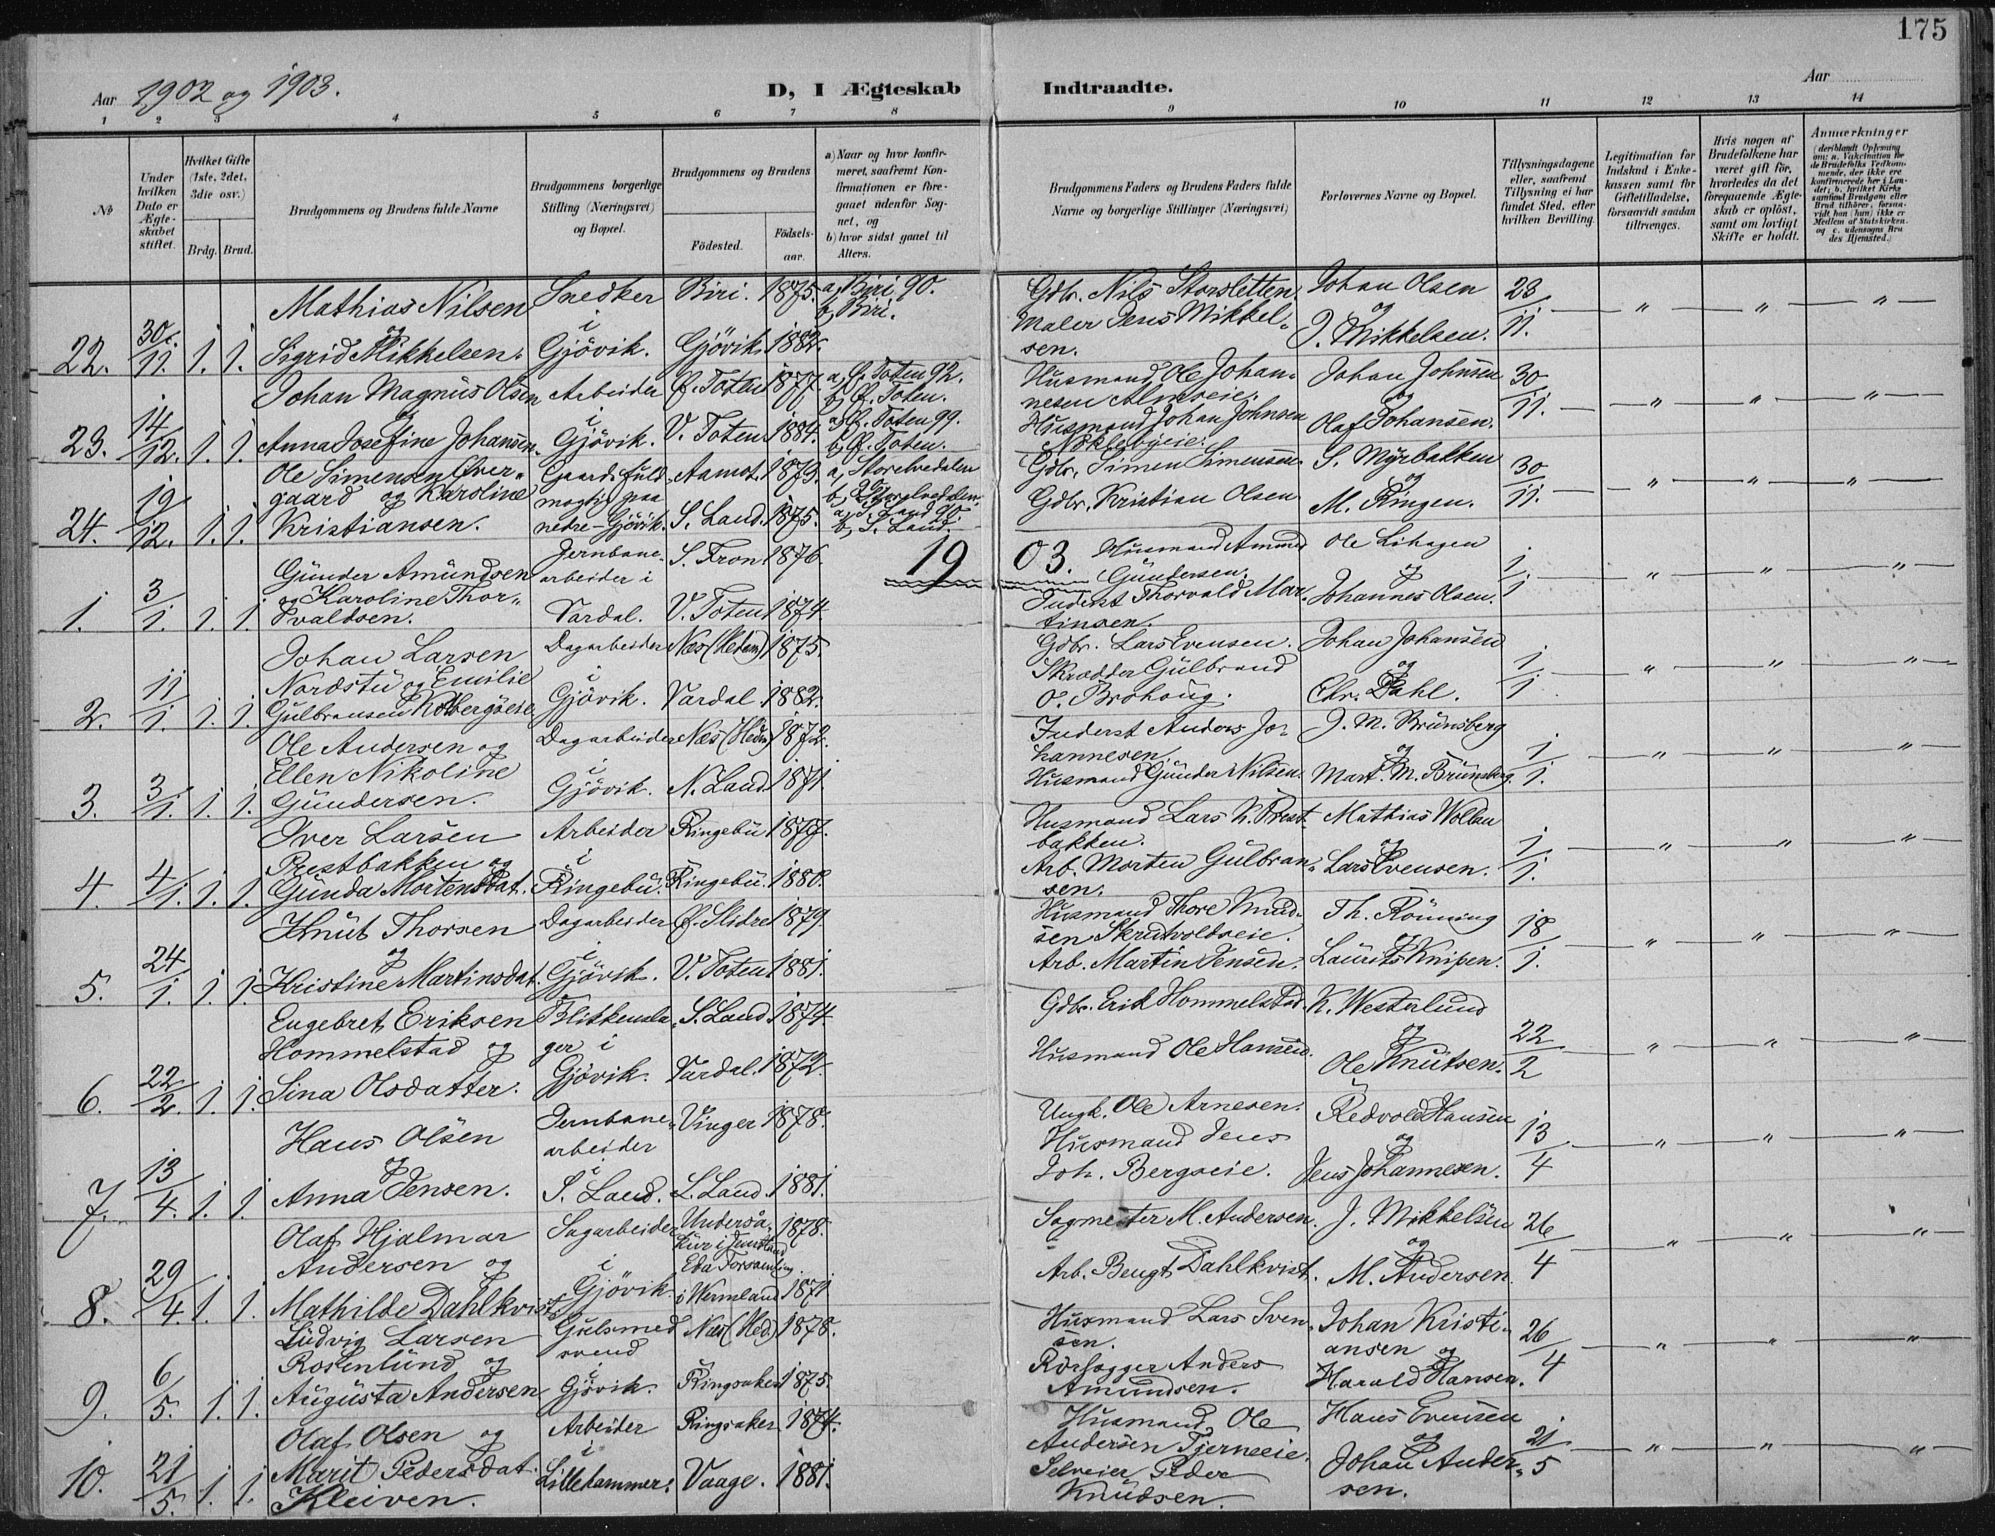 175
Aar 1902 og 1903.
D, I Ægteskab Indtraadte.
Aar
1 2 3 4 5 6 7 8 9 10 11 12 13 14
№
Under hvilken Dato er Ægteskabet stiftet.
Hvilket Gifte (1ste, 2det, 3die osv.)
Brdg. Brud.
Brudgommens og Brudens fulde Navne
Brudgommens borgerlige Stilling (Næringsvei) og Bopæl.
Brudgommens og Brudens
Födested.
Födselsaar.
a) Naar og hvor konfirmeret, saafremt Konfirmationen er foregaaet udenfor Sognet, og
b) hvor sidst gaaet til Alters.
Brudgommens Faders og Brudens Faders fulde Navne og borgerlige Stillinger (Næringsvei)
Forlovernes Navne og Bopæl.
Tillysningsdagene eller, saafremt Tillysning ei har fundet Sted, efter hvilken Bevilling.
Legitimation for Indskud i Enkekassen samt for Giftetilladelse, forsaavidt saadan tiltrænges.
Hvis nogen af Brudefolkene har været gift för, hvorledes da det foregaaende Ægteskab er oplöst, samt om lovligt Skifte er holdt.
Anmærkninger (deriblandt Oplysning om: a. Vakcination for de Brudefolks Vedkommende, der ikke ere konfirmerede her i Landet; b. hvilket Kirkesamfund Brudgom eller Brud tilhörer, forsaavidt han (hun) ikke er Medlem af Statskirken, og c. udensogns Brudes Hjemsted.)
22. 30/11. 1. 1. Mathias Nilsen og Sigrid Mikkelsen. Snedker i Gjövik. Biri. 1875. Gjövik 1882. a, Biri 90. b, Biri.
Gdbr. Nils Storsletten. Maler Jens Mikkelsen. Johan Olsen og J. Mikkelsen. 23/11. " " "
23. 14/12. 1. 1. Johan Magnus Olsen og Anna Josefine Johansen. Arbeider i Gjövik. Ö. Toten 1877. V. Toten 1884. a, Ö. Toten 92. b, Ö. Toten. a, Ö. Toten 99. b, Ö. Toten.
Husmand Ole Johannesen Almseie. Husmand Johan Johnsen Nöklebyeie. Johan Johnsen og Olaf Johansen. 30/11. " " "
24. 19/12. 1. 1. Ole Simensen Övergaard og Karoline Kristiansen. Gaardsfuldmægtig paa nedre-Gjövik. Aamot. 1873. S. Land. 1875. a, Storelvedalen b, Storelvedalen a, S. Land 90. b, S. Land.
Gdbr. Simen Simensen. Gdbr. Kristian Olsen S. Myrbakken og M. Ringen. 30/11. " " "
1903.
1. 3/1. 1. 1. Gunder Amundsen og Karoline Thorvaldsen. Jernbanearbeider i Vardal. S. Fron 1876. V. Toten 1874.
Husmand Amund Gundersen. Inderst Thorvald Martinsen. Ole Lihagen og Johannes Olsen. 1/1 " " "
2. 11/1. 1. 1. Johan Larsen Nordstu og Emilie Gulbransen Kolbergseie Dagarbeider i Gjövik. Næs (Hedem) 1875. Vardal 1882.
Gdbr. Lars Evensen. Skrædder Gulbrand O. Brohoug. Johan Johansen og Chr. Dahl. 1/1 " " "
3. 3/1. 1. 1. Ole Andersen og Ellen Nikoline Gundersen. Dagarbeider i Gjövik. Næs (Hedm) 1872. N. Land 1871.
Inderst Anders Johannesen. Husmand Gunder Nilsen. J. M. Brunsberg og Mart. M. Brunsberg. 1/1. " " "
4. 4/1. 1. 1. Iver Larsen Prestbakken og Gunda Mortensdat. Arbeider i Ringebu. Ringebu 1877. Ringebu. 1880.
Husmand Lars K. Prestbakken. Arb. Morten Gulbransen. Mathias Wollan og Lars Svensen. 1/1. " " "
5. 24/1. 1. 1. Knut Thorsen og Kristine Martinsdat. Dagarbeider i Gjövik. Ö. Slidre 1879. V. Toten 1881.
Husmand Thore Knudsen Skrutvoldseie. Arb. Martin Jensen. Th. Rönning og Laurits Knipen. 18/1. " " "
6. 22/2. 1. 1. Engebret Eriksen Hommelstad og Sina Olsdatter. Blikkenslager i Gjövik. S. Land. 1874. Vardal. 1872.
Gdbr. Erik Hommelstad. Husmand Ole Hansen. K. Westerlund og Ole Knutsen. 22/2 " " "
7. 13/4. 1. 1. Hans Olsen og Anna Jensen. Jernbanearbeider i S. Land. Vinger 1878. S. Land. 1881.
Ungk. Ole Arnesen. Husmand Jens Joh. Bergseie. Redvold Hansen og Jens Johannesen. 13/4 " " "
8. 29/4. 1. 1. Olaf Hjalmar Andersen og Mathilde Dahlkvist Sagarbeider i Gjövik. 1878. Eda Forsamling i Wermland 1871
Sagmester M. Andersen. Arb. Bengt Dahlkvist. J. Mikkelsen og M. Andersen. 26/4 " " "
9. 6/5. 1. 1. Ludvig Larsen Rosenlund og Augusta Andersen Gjelsmedsvend i Gjövik. Næs (Hed) 1878. Ringsaker 1875.
Husmand Lars Svensen. Rörlægger Anders Amundsen. Johan Kristiansen og Harald Hansen. 26/4 " " "
10. 21/5. 1. 1. Olaf Olsen og Marit Pedersdat. Kleiven. Arbeider i Lillehammer. Ringsaker 1874. Vaage. 1881.
Husmand Ole Andersen Tjerneeie. Selveier Peder Knudsen. Hans Evensen og Johan Andersen. 21/5 " " "